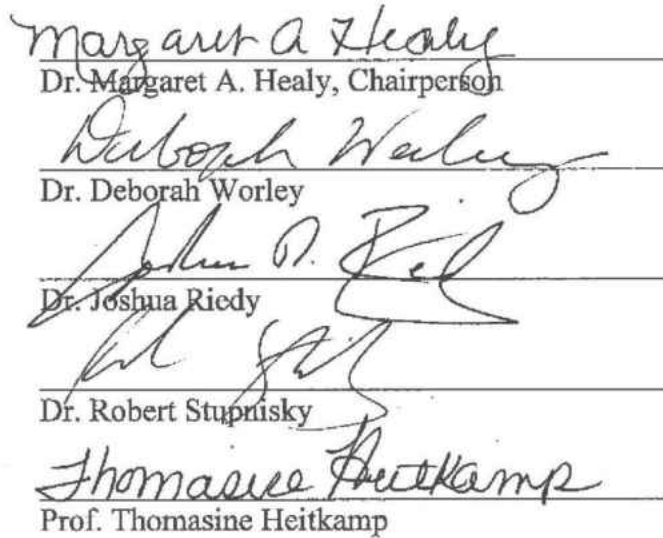 Margaret A Healy
Dr. Margaret A. Healy, Chairperson
Deborah Worley
Dr. Deborah Worley
Joshua
Dr. Joshua Riedy
Dr. Robert Stupnisky
Thomasine Heitkamp
Prof. Thomasine Heitkamp